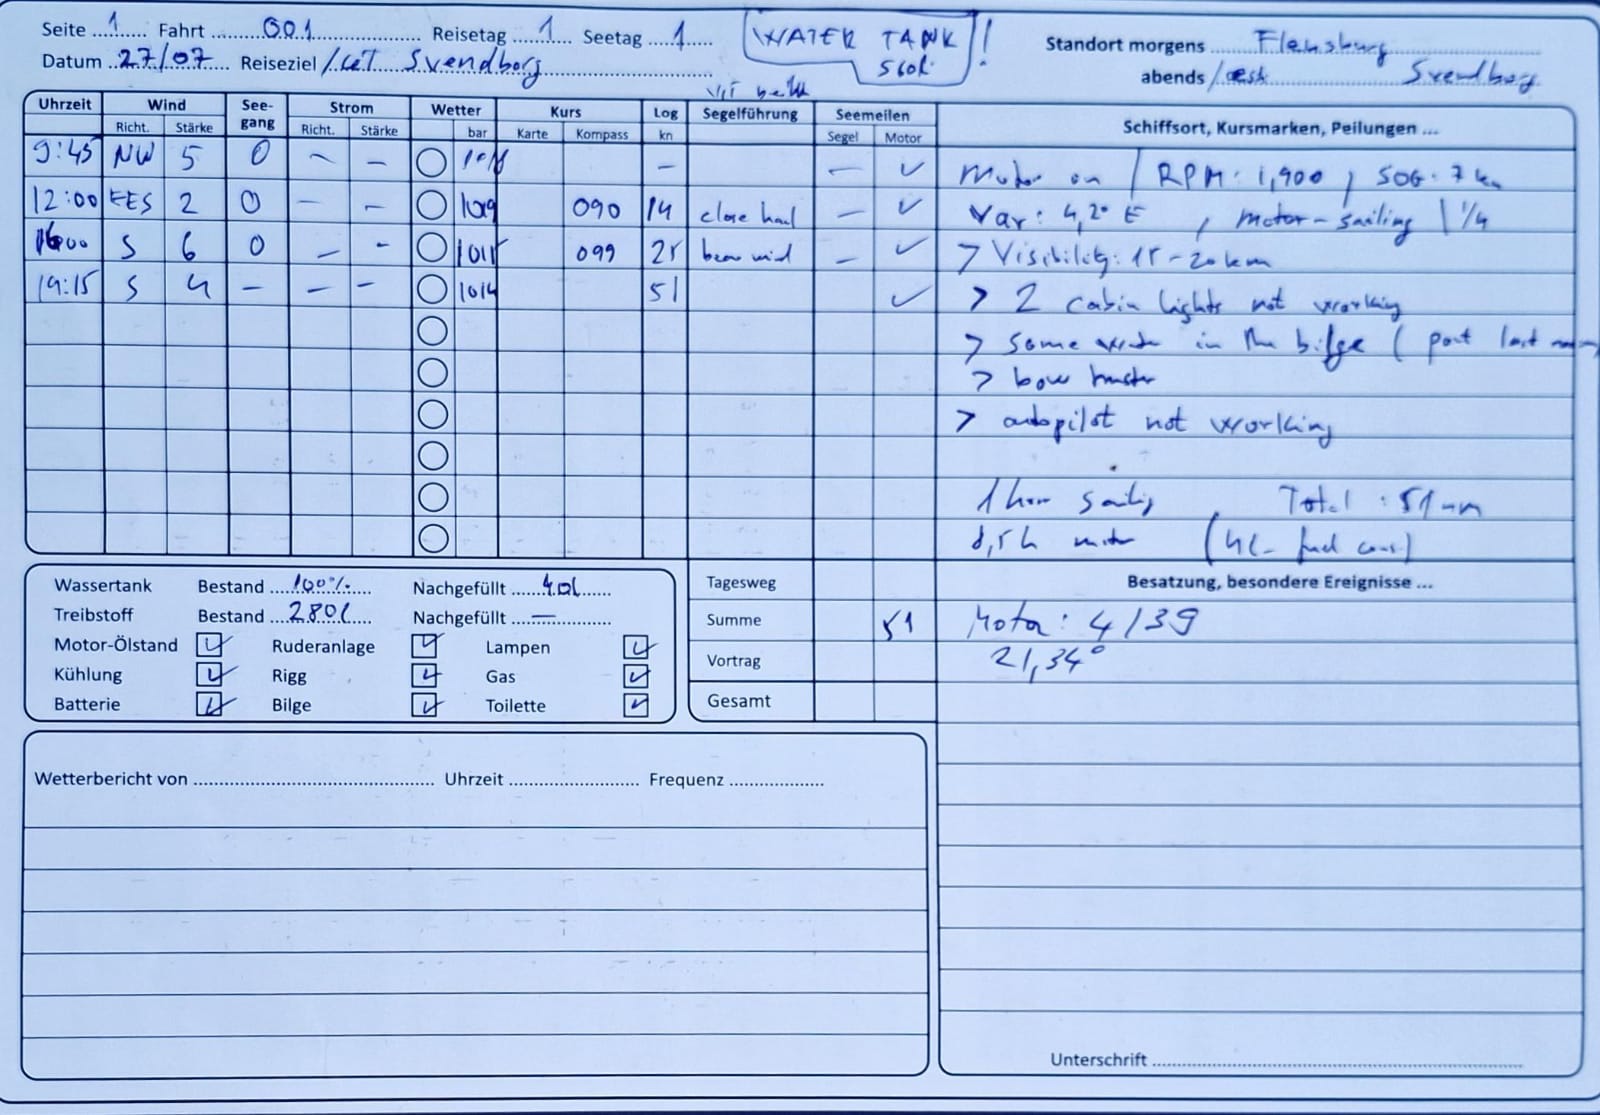 Seite 1 Fahrt 001 Reisetag 1 Seetag 1 WATER TANK ! Standort morgens Flensburg
560L
Datum 27/07 Reiseziel Svendborg abends Svendborg
Uhrzeit Wind See-gang Strom Wetter Kurs Log Segelführung Seemeilen Schiffsort, Kursmarken, Peilungen ...
Richt. Stärke Richt. Stärke bar Karte Kompass kn Segel Motor
9:45 NW 5 0 ~ – – – ✓ Motor on / RPM: 1,900 , SOG: 7 kn
12:00 2 0 – – 1019 090 14 close haul – ✓ Var: 4,2° E , motor-sailing | 1/4
16:00 S 6 0 – - 1015 099 25 – ✓ > Visibility: 15-20 km
19:15 S 4 – – – 1014 51 ✓ > 2 cabin lights not working
> some water in the bilge ( port last
> bow thruster
> autopilot not working
1 hour sailing Total : 51 nm
8,5 h motor (4L fuel cons)
Wassertank Bestand 100% Nachgefüllt 40L Tagesweg Besatzung, besondere Ereignisse ...
Treibstoff Bestand 280L Nachgefüllt — Summe 51 Motor: 4/39
Motor-Ölstand ✓ Ruderanlage ✓ Lampen ✓
Kühlung ✓ Rigg ✓ Gas ✓ Vortrag 21,34°
Batterie ✓ Bilge ✓ Toilette ✓ Gesamt
Wetterbericht von Uhrzeit Frequenz
Unterschrift